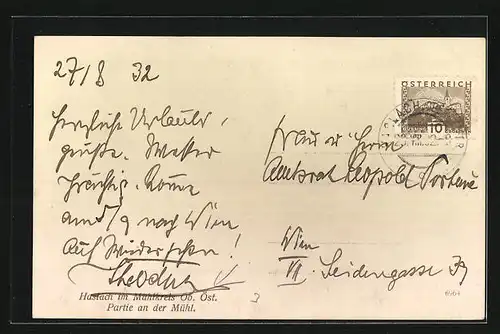 27/8 32
Herzliche Urlaubs-
grüße. Wetter
prächtig. Komme
am 5/9 nach Wien
Auf Wiedersehen!
Haslach im Mühlkreis Ob. Öst.
Partie an der Mühl.
ÖSTERREICH
10
Frau u Herrn
Amtsrat Leopold
Wien
VI. Seidengasse